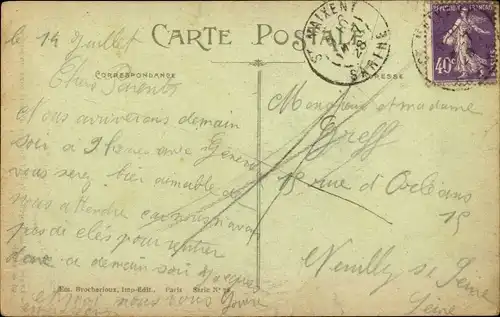 le 14 Juillet
CARTE POSTALE
CORRESPONDANCE
ADRESSE
ST MAIXENT
SARTHE
28
40c
Chers Parents
nous arriverons demain
soir à 9 heures avec
vous serez bien aimable de
nous attendre car nous n'avons
pas de clés pour rentrer
donc a demain soir
et moi nous vous
Monsieur et madame
Greff
15 rue d'Orléans
15
Neuilly se Seine
Seine
Em. Brocherioux, Imp-Edit., Paris Série N°